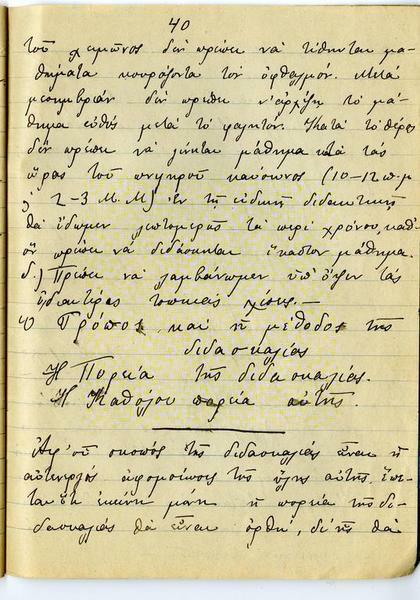 40
τοῦ χειμῶνος δὲν πρέπει νὰ τίθηνται μα-
θήματα κουράζοντα τὸν ὀφθαλμόν. Μετὰ
μεσημβρίαν δὲν πρέπει ν' ἀρχίζῃ τὸ μά-
θημα εὐθύς μετὰ τὸ φαγητόν. Κατὰ τὸ θέρος
δὲν πρέπει νὰ γίνηται μάθημα κατὰ τὰς
ὥρας τοῦ πνιγηροῦ καύσωνος (10-12 π.μ
ἢ 2-3 Μ.Μ) ἐν τῇ εἰδικῇ διδακτικῇ
θὰ ἴδωμεν λεπτομερῶς τὰ περὶ χρόνου, καθ'
ὃν πρέπει νὰ διδάσκηται ἕκαστον μάθημα.
δ.) Πρέπει νὰ λαμβάνωμεν ὑπ' ὄψιν τὰς
ἰδιαιτέρας τοπικὰς σχέσεις. —
Τρόπος καὶ ἡ μέθοδος τῆς
διδασκαλίας
Ἡ Πορεία τῆς διδασκαλίας.
Ἡ Καθόλου πορεία αὐτῆς.
Ἀφ' οὗ σκοπὸς τῆς διδασκαλίας εἶναι ἡ
αὐτενεργὸς ἀφομοίωσις τῆς ὕλης αὐτῆς, ἕπε-
ται ὅτι ἐκείνη μόνη ἡ πορεία τῆς δι-
δασκαλίας θὰ εἶναι ὀρθὴ, δι' ἧς θὰ